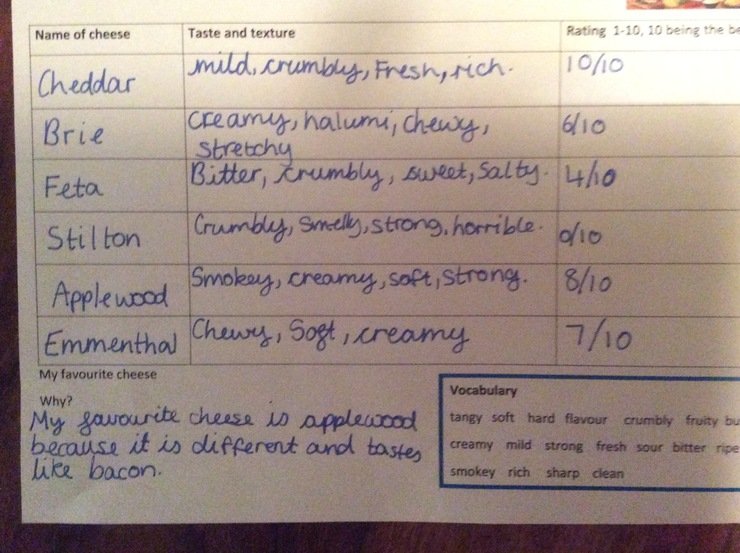 Name of cheese Taste and texture Rating 1-10, 10 being the be
Cheddar mild, crumbly, Fresh, rich. 10/10
Brie Creamy, halumi, Chewy, 6/10
Stretchy
Feta Bitter, crumbly, sweet, Salty. 4/10
Stilton Crumbly, Smelly, strong, horrible. 0/10
Applewood Smokey, creamy, soft, strong. 8/10
Emmenthal Chewy, Soft, creamy 7/10
My favourite cheese
Why?
My favourite cheese is applewood
because it is different and tastes
like bacon.
Vocabulary
tangy soft hard flavour crumbly fruity bu
creamy mild strong fresh sour bitter ripe
smokey rich sharp clean